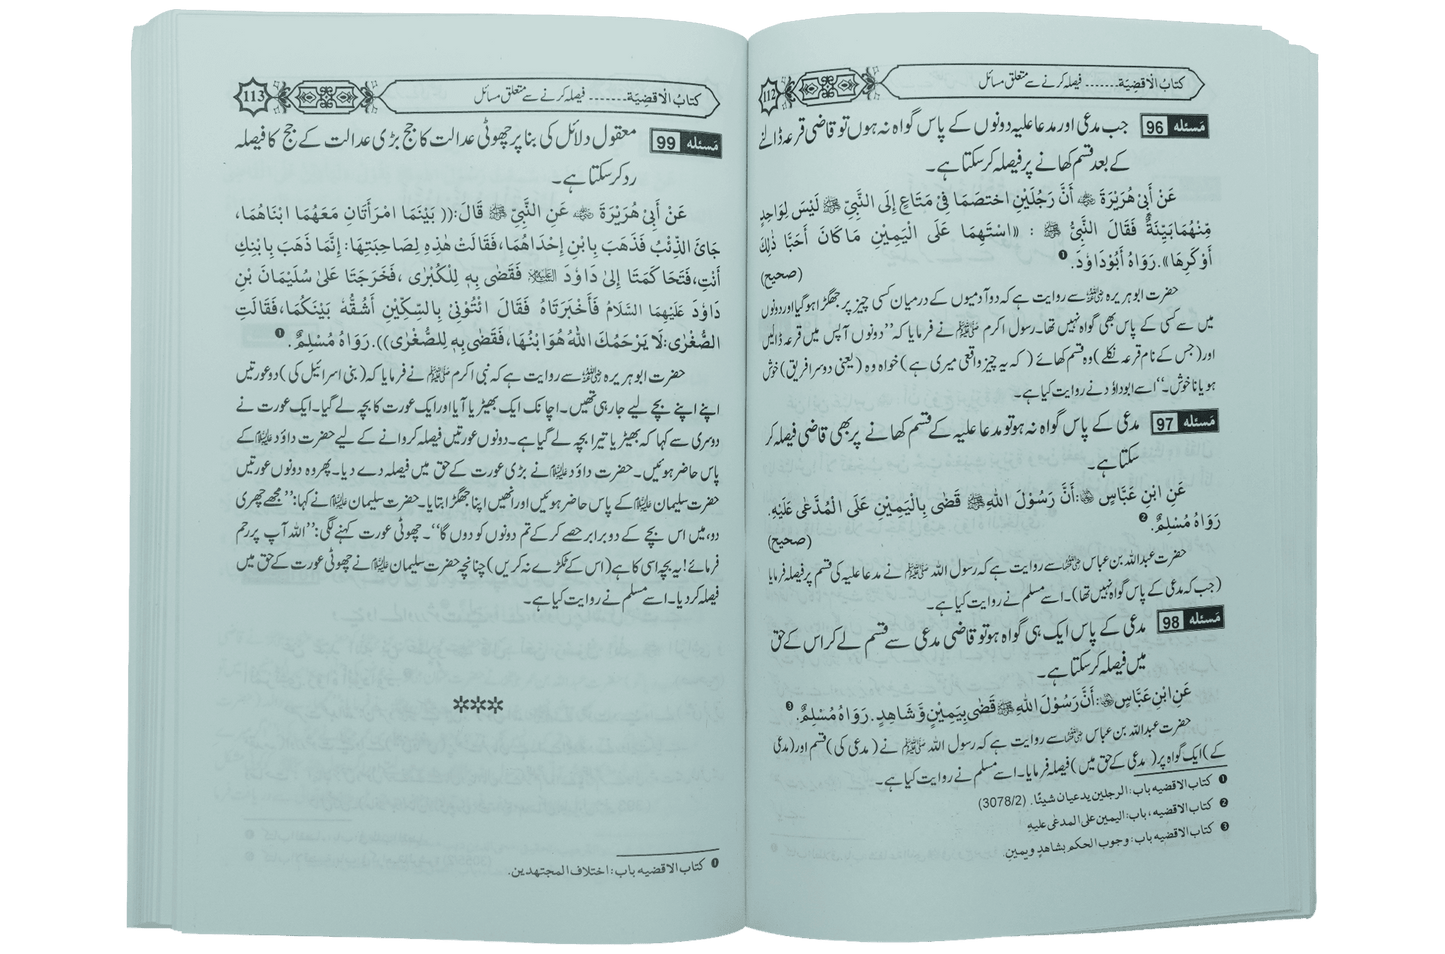 112 کتابُ الْاَقضِیَة ....... فیصلہ کرنے سے متعلق مسائل
مَسئلہ 96 جب مدعی اور مدعا علیہ دونوں کے پاس گواہ نہ ہوں تو قاضی قرعہ ڈالنے
کے بعد قسم کھانے پر فیصلہ کر سکتا ہے۔
عَنْ أَبِیْ هُرَیْرَةَ ؓ أَنَّ رَجُلَیْنِ اخْتَصَمَا فِیْ مَتَاعٍ إِلَی النَّبِیِّ ﷺ لَیْسَ لِوَاحِدٍ
مِّنْهُمَا بَیِّنَةٌ فَقَالَ النَّبِیُّ ﷺ : «اسْتَهِمَا عَلَی الْیَمِیْنِ مَا کَانَ أَحَبَّا ذٰلِكَ
أَوْ کَرِهَا». رَوَاهُ أَبُوْدَاوٗدَ. ❶
(صحیح)
حضرت ابوہریرہ ؓ سے روایت ہے کہ دو آدمیوں کے درمیان کسی چیز پر جھگڑا ہو گیا اور دونوں
میں سے کسی کے پاس بھی گواہ نہیں تھا۔ رسول اکرم ﷺ نے فرمایا کہ ’’دونوں آپس میں قرعہ ڈالیں
اور (جس کے نام قرعہ نکلے) وہ قسم کھائے (کہ یہ چیز واقعی میری ہے) خواہ وہ (یعنی دوسرا فریق) خوش
ہو یا ناخوش۔‘‘ اسے ابوداؤد نے روایت کیا ہے۔
مَسئلہ 97 مدعی کے پاس گواہ نہ ہو تو مدعا علیہ کے قسم کھانے پر بھی قاضی فیصلہ کر
سکتا ہے۔
عَنِ ابْنِ عَبَّاسٍ ؓ: أَنَّ رَسُوْلَ اللهِ ﷺ قَضٰی بِالْیَمِیْنِ عَلَی الْمُدَّعٰی عَلَیْهِ.
رَوَاهُ مُسْلِمٌ. ❷
(صحیح)
حضرت عبداللہ بن عباس ؓ سے روایت ہے کہ رسول اللہ ﷺ نے مدعا علیہ کی قسم پر فیصلہ فرمایا
(جب کہ مدعی کے پاس گواہ نہیں تھا)۔ اسے مسلم نے روایت کیا ہے۔
مَسئلہ 98 مدعی کے پاس ایک ہی گواہ ہو تو قاضی مدعی سے قسم لے کر اس کے حق
میں فیصلہ کر سکتا ہے۔
عَنِ ابْنِ عَبَّاسٍ ؓ: أَنَّ رَسُوْلَ اللهِ ﷺ قَضٰی بِیَمِیْنٍ وَّ شَاهِدٍ. رَوَاهُ مُسْلِمٌ. ❸
حضرت عبداللہ بن عباس ؓ سے روایت ہے کہ رسول اللہ ﷺ نے (مدعی کی) قسم اور (مدعی
کے) ایک گواہ پر (مدعی کے حق میں) فیصلہ فرمایا۔ اسے مسلم نے روایت کیا ہے۔
❶ کتاب الاقضیه باب: الرجلین یدعیان شیئًا. (3078/2)
❷ کتاب الاقضیه، باب: الیمین علی المدعٰی علیه
❸ کتاب الاقضیه باب: وجوب الحکم بشاهدٍ ویمینٍ.
113 کتابُ الْاَقضِیَة ....... فیصلہ کرنے سے متعلق مسائل
مَسئلہ 99 معقول دلائل کی بنا پر چھوٹی عدالت کا جج بڑی عدالت کے جج کا فیصلہ
رد کر سکتا ہے۔
عَنْ أَبِیْ هُرَیْرَةَ ؓ عَنِ النَّبِیِّ ﷺ قَالَ: ((بَیْنَمَا امْرَأَتَانِ مَعَهُمَا ابْنَاهُمَا،
جَائَ الذِّئْبُ فَذَهَبَ بِابْنِ إِحْدَاهُمَا، فَقَالَتْ هٰذِهٖ لِصَاحِبَتِهَا: إِنَّمَا ذَهَبَ بِابْنِكِ
أَنْتِ، فَتَحَاکَمَتَا إِلٰی دَاوٗدَ ﷤ فَقَضٰی بِهٖ لِلْکُبْرٰی، فَخَرَجَتَا عَلٰی سُلَیْمَانَ بْنِ
دَاوٗدَ عَلَیْهِمَا السَّلَامُ فَأَخْبَرَتَاهُ فَقَالَ ائْتُوْنِیْ بِالسِّکِّیْنِ أَشُقُّهٗ بَیْنَکُمَا، فَقَالَتِ
الصُّغْرٰی: لَا یَرْحَمُكَ اللهُ هُوَ ابْنُهَا، فَقَضٰی بِهٖ لِلصُّغْرٰی)). رَوَاهُ مُسْلِمٌ. ❶
حضرت ابوہریرہ ؓ سے روایت ہے کہ نبی اکرم ﷺ نے فرمایا کہ (بنی اسرائیل کی) دو عورتیں
اپنے اپنے بچے لیے جا رہی تھیں۔ اچانک ایک بھیڑیا آیا اور ایک عورت کا بچہ لے گیا۔ ایک عورت نے
دوسری سے کہا کہ بھیڑیا تیرا بچہ لے گیا ہے۔ دونوں عورتیں فیصلہ کروانے کے لیے حضرت داؤد ﷤ کے
پاس حاضر ہوئیں۔ حضرت داؤد ﷤ نے بڑی عورت کے حق میں فیصلہ دے دیا۔ پھر وہ دونوں عورتیں
حضرت سلیمان ﷤ کے پاس حاضر ہوئیں اور انھیں اپنا جھگڑا بتایا۔ حضرت سلیمان ﷤ نے کہا: ’’مجھے چھری
دو، میں اس بچے کے دو برابر حصے کر کے تم دونوں کو دوں گا‘‘۔ چھوٹی عورت کہنے لگی: ’’اللہ آپ پر رحم
فرمائے! یہ بچہ اسی کا ہے (اس کے ٹکڑے نہ کریں) چنانچہ حضرت سلیمان ﷤ نے چھوٹی عورت کے حق میں
فیصلہ کر دیا۔ اسے مسلم نے روایت کیا ہے۔
***
❶ کتاب الاقضیه باب: اختلاف المجتهدین.